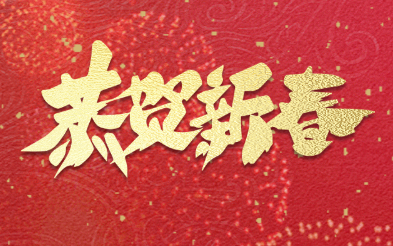 恭贺新春